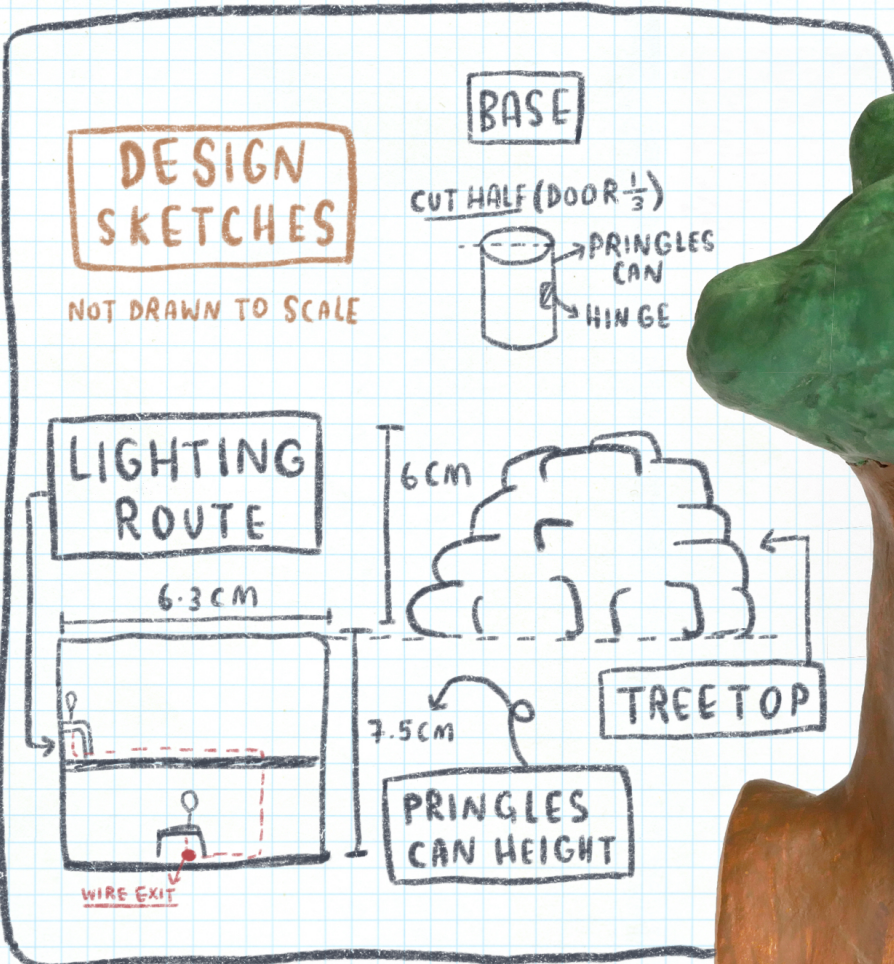 DESIGN
SKETCHES
NOT DRAWN TO SCALE
BASE
CUT HALF (DOOR 1/3)
PRINGLES
CAN
HINGE
LIGHTING
ROUTE
6CM
6.3CM
7.5CM
TREETOP
PRINGLES
CAN HEIGHT
WIRE EXIT